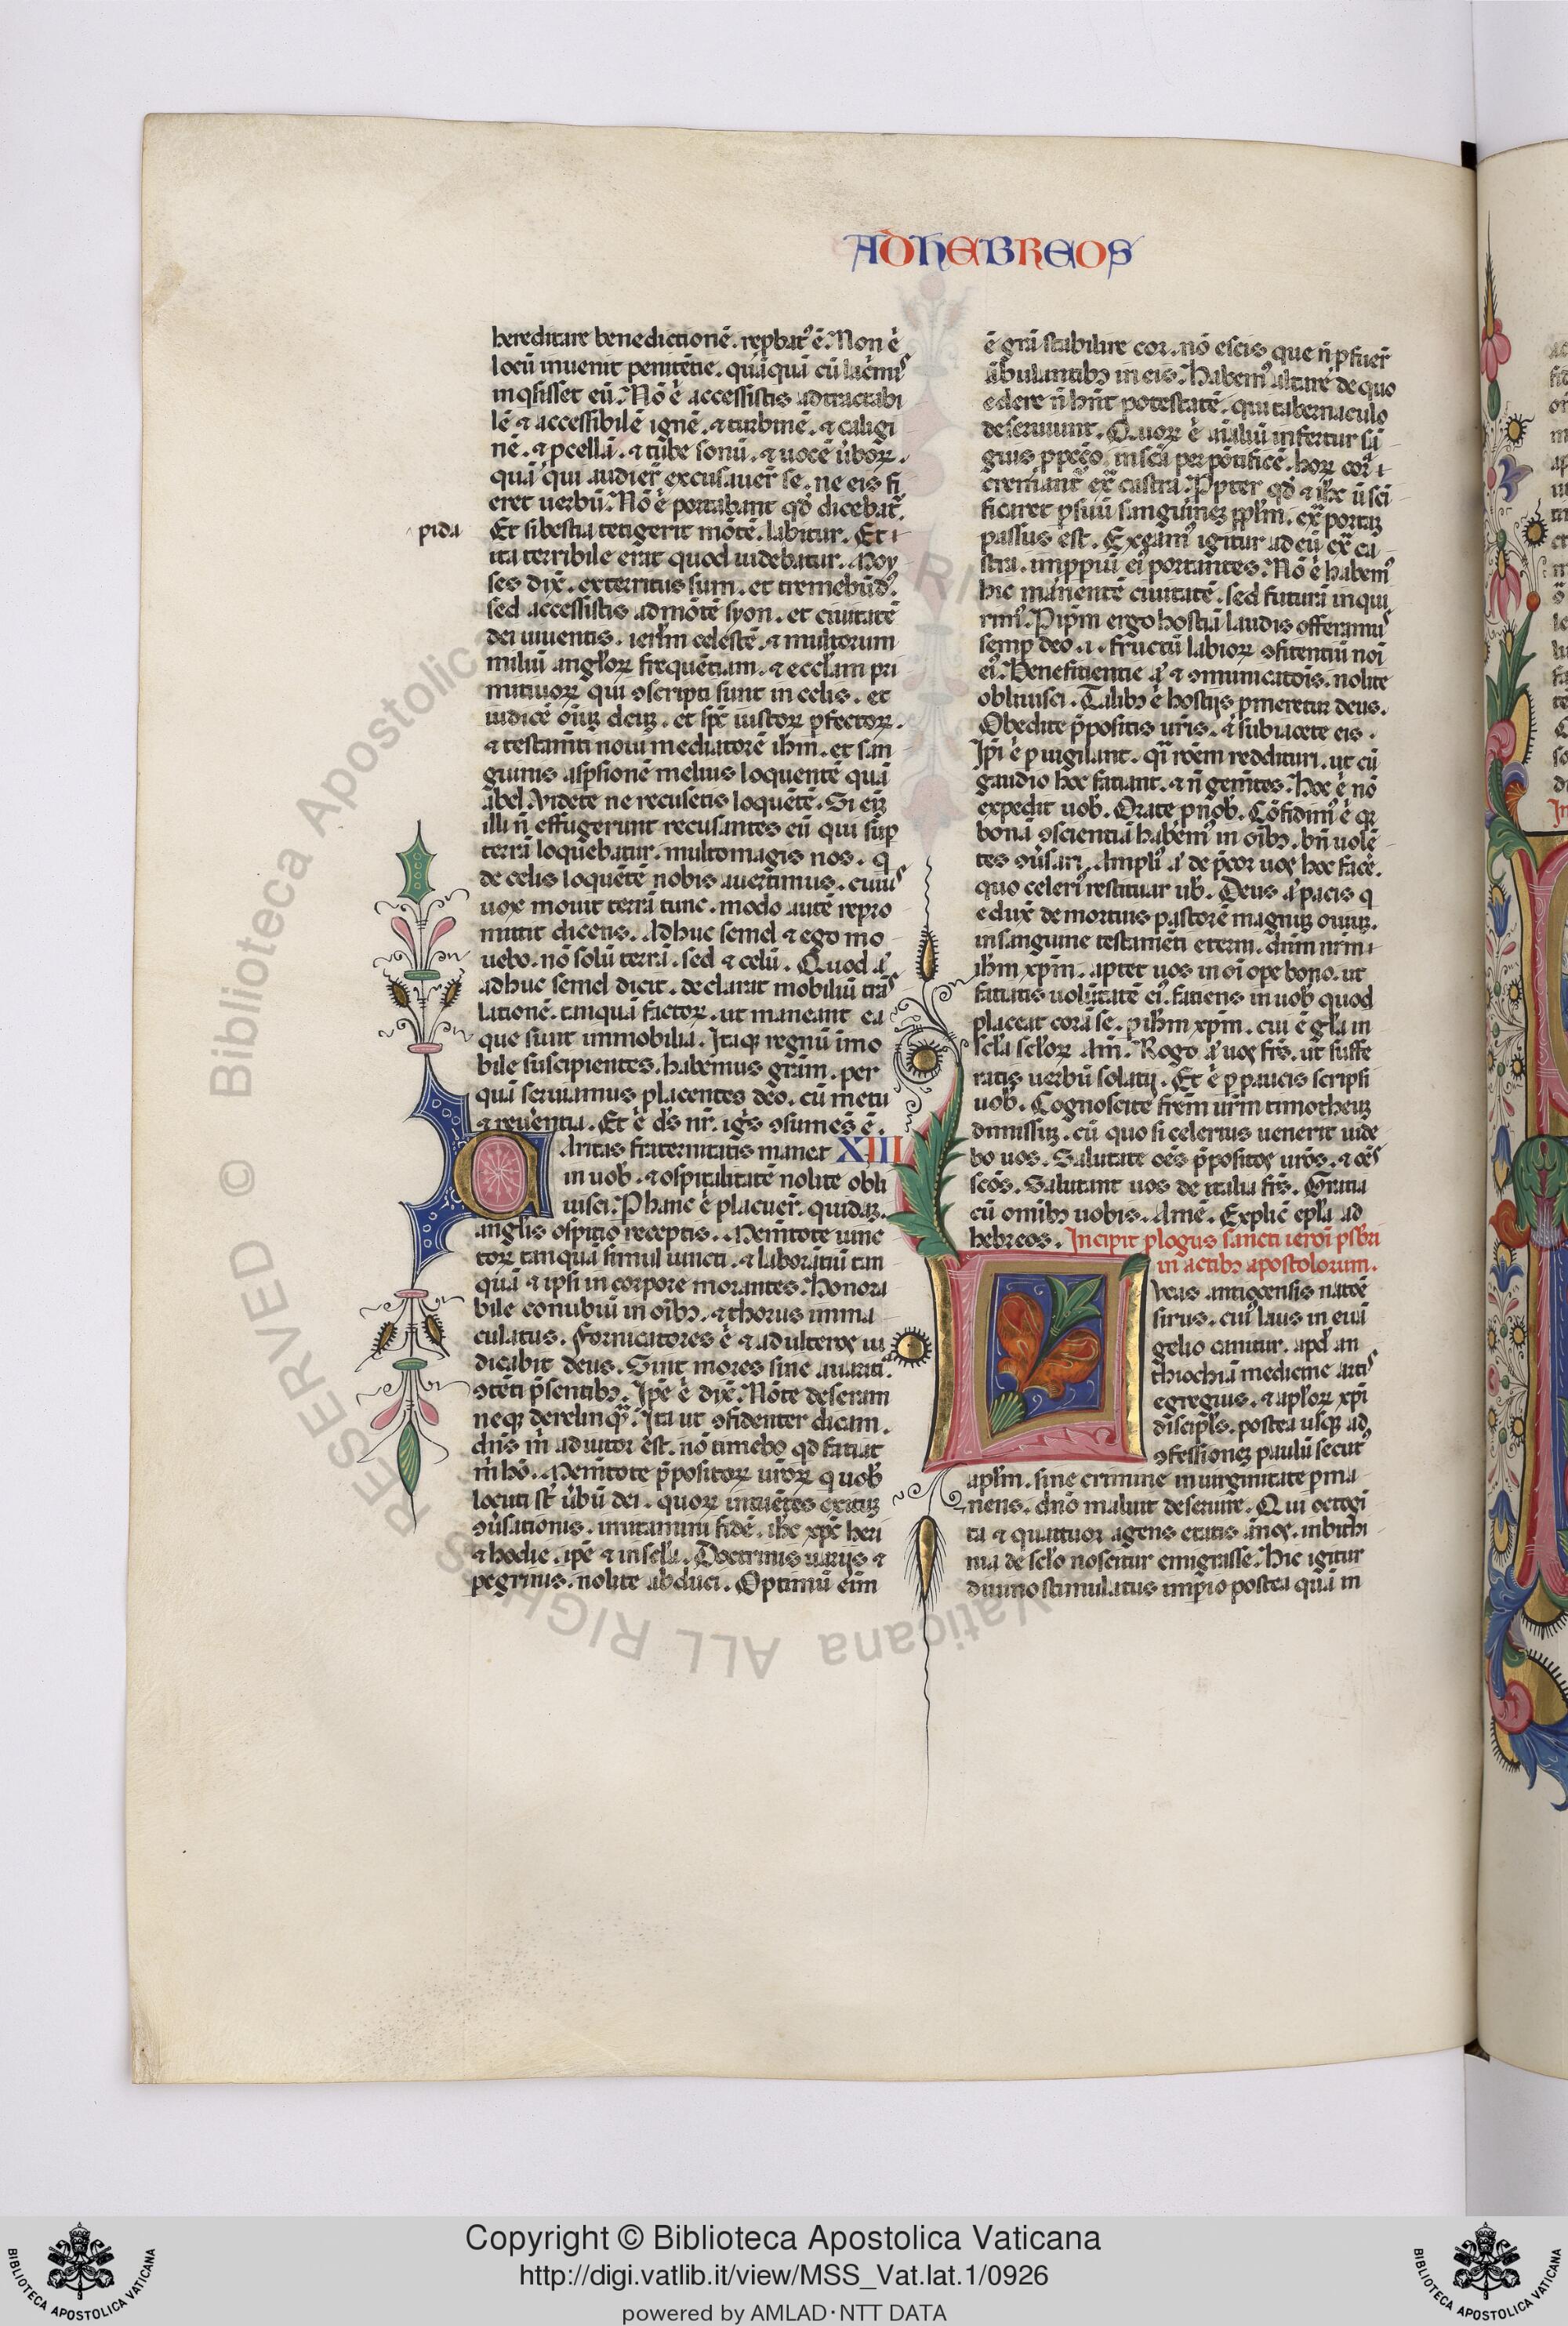 AD HEBREOS
hereditare benedictionē. rep̱bat᾽ ē. Non ė
locū inuenit penitētie. quāquā cū lac̄mis
inq̇sisset eū. Nō ė accessistis ad tractabi
lē ⁊ accessibilē ignē. ⁊ turbinē. ⁊ caligi
nē. ⁊ ꝓcellā. ⁊ tube sonū. ⁊ uocē ūboꝝ.
quā qui audier̄ excusauer̄ se. ne eis fi
eret uerbū. Nō ė portabant qd̄ dicebat̄.
pida
Et si bestia tetigerit mōtē. labitur. Et
ita terribile erat quod uidebatur. Moy
ses dix̄. exterritus sum. et tremebūd᾽.
sed accessistis ad mōtē syon. et ciuitatē
dei uiuentis. ierl̄m celestē. ⁊ multorum
miliū angl̄oꝝ frequētiam. ⁊ eccl̄am pri
mitiuoꝝ qui ꝯscripti sunt in celis. et
iudicē oīuꝫ deuꝫ. et sp̄c iustoꝝ ꝑfectoꝝ.
⁊ testam̄ti noui mediatorē ih̄m. et san
guinis aspsionē melius loquentē quā
abel. Videte ne recusetis loquētē. Si eīꝫ
illi n̄ effugerunt recusantes eū qui sup̄
terrā loquebatur. multomagis nos. q̇
de celis loquētē nobis auertimus. cuius
uox mouit terrā tunc. modo autē repro
mittit dicens. Adhuc semel ⁊ ego mo
uebo. nō solū terrā. sed ⁊ celū. Quod a᾽
adhuc semel dicit. declarat mobiliū trās
lationē. tanquā factoꝝ. ut maneant ea
que sunt immobilia. Itaqꝫ regnū imo
bile suscipientes. habemus grām. per
quā seruiamus placentes deo. cū metu
⁊ reuētia. Et ė ds̄ nr̄. igīs ꝯsumēs ē.
Caritas fraternitatis maneat XIII
in uob᾽. ⁊ ospitalitatē nolite obli
uisci. P hanc ė placuer̄. quidaꝫ.
angl̄is ospitio receptis. Mem̄tote uinc
toꝝ tanquā simul uincti. ⁊ laborātiū tan
quā ⁊ ipsi in corpore morantes. Honora
bile conubiū in oībꝫ. ⁊ thorus imma
culatus. Fornicatores ė ⁊ adulteros iu
dicabit deus. Sint mores sine auaritia.
ꝯtēti p̄sentibꝫ. Ip̄e ė dix̄. Nō te deseram
neqꝫ derelinq̄. Ita ut ꝯfidenter dicam.
dn̄s m̄ adiutor est. nō timebo qd̄ fatiat
m̄ hō. Mem̄tote p̄positoꝝ ur̄oꝝ q̇ uob᾽
locuti st̄ ūbū dei. quoꝝ intuētes exituꝫ
ꝯūsationis. imitamini fidē. ih̄c xp̄c heri
⁊ hodie. ip̄e ⁊ in scl̄a. Doctrinis uarijs ⁊
pegrinis. nolite abduci. Optimū eīm
ē gr̄a stabilire cor. nō escis que n̄ ꝓfuer̄
ābulantibꝫ in eis. Habem᾽ altare de quo
edere n̄ hn̄t potestatē. qui tabernaculo
deseruiunt. Quoꝝ ė aīaliū infertur sā
guis ꝓ pecc̄o. in sc̄a per pōtificē. hoꝝ cor̄
cremant̄ ex̄ castra. Ppter qd̄ ⁊ ih̄c ū sc̄i
ficaret ꝑ suū sanguineꝫ ppl̄m. ex̄ portaꝫ
passus est. Exeam᾽ igitur ad eū ex̄ ca
stra. impꝓiū ei᾽ portantes. Nō ė habem᾽
hic manentē ciuitatē. sed futurā inqui
rim᾽. P ip̄m ergo hostiā laudis offeramus
semp̱ deo. .i. fructū labioꝝ ꝯfitentiū noī
ei᾽. Benefitientie a᾽ ⁊ ꝯmunicatōis. nolite
obliuisci. Talibꝫ ė hostijs ꝓmeretur deus.
Obedite p̄positis ur̄is. ⁊ subiacete eis.
Ip̄i ė ꝑuigilant. qͣi rōem reddituri. ut cū
gaudio hoc fatiant. ⁊ n̄ gem̄tes. Hoc ė nō
expedit uob᾽. Orate ꝓ nob᾽. Cōfidim᾽ ė qꝛ
bonā ꝯscientiā habem᾽ in oībꝫ. bn̄ uolē
tes ꝯūsari. Ampli᾽ a᾽ de p̄cor uos hoc facē.
quo celeri᾽ restituar ub᾽. Deus a᾽ pacis q̇
eduxͭ de mortuis pastorē magnuꝫ ouiuꝫ.
in sanguine testamēti eterni. dn̄m nr̄m
ih̄m xp̄m. aptet uos in oī ope bono. ut
fatiatis uolūtatē ei᾽. fatiens in uob᾽ quod
placeat corā se. ꝑ ih̄m xp̄m. cui ē gl̄a in
scl̄a scl̄oꝝ. Am̄. Rogo a᾽ uos frs̄. ut suffe
ratis uerbū solatij. Et ė ꝑ paucis scripsi
uob᾽. Cognoscite frēm ur̄m timotheuꝫ
dimissuꝫ. cū quo si celerius uenerit uide
bo uos. Salutate oēs p̄positos ur̄os. ⁊ oēs
sc̄os. Salutant uos de italia frs̄. Gratia
cū omībꝫ uobis. Amē. Explic̄ epl̄a ad
hebreos. Incipit ꝓlogus sancti ieroī p̄sbri
in actibꝫ apostolorum.
Lvcas antiocensis natōe
sirus. cui᾽ laus in euā
gelio canitur. apd̄ an
thiochiā medicine artis
egregius. ⁊ apl̄oꝝ xp̄i
discip̄ls. postea usqꝫ ad
ꝯfessioneꝫ paulū secut᾽
apl̄m. sine crimine in uirginitate ꝑma
nens. dn̄o maluit deseruire. Qui octogī
ta ⁊ quattuor agens etatis ānos. in bithi
nia de scl̄o noscitur emigrasse. Hic igitur
diuino stimulatus impio postea quā in
© Biblioteca Apostolica Vaticana ALL RIGHTS RESERVED
Copyright © Biblioteca Apostolica Vaticana
http://digi.vatlib.it/view/MSS_Vat.lat.1/0926
powered by AMLAD·NTT DATA
BIBLIOTECA APOSTOLICA VATICANA
BIBLIOTECA APOSTOLICA VATICANA